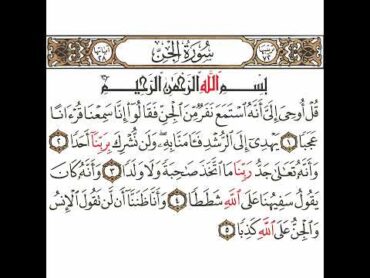 سُورَةُ الجِنِّ
بِسْمِ اللَّهِ الرَّحْمَٰنِ الرَّحِيمِ
قُلْ أُوحِيَ إِلَيَّ أَنَّهُ اسْتَمَعَ نَفَرٌ مِّنَ الْجِنِّ فَقَالُوا إِنَّا سَمِعْنَا قُرْءَانًا
عَجَبًا ١ يَهْدِي إِلَى الرُّشْدِ فَـَٔامَنَّا بِهِ وَلَن نُّشْرِكَ بِرَبِّنَا أَحَدًا ٢
وَأَنَّهُ تَعَالَىٰ جَدُّ رَبِّنَا مَا اتَّخَذَ صَاحِبَةً وَلَا وَلَدًا ٣ وَأَنَّهُ كَانَ
يَقُولُ سَفِيهُنَا عَلَى اللَّهِ شَطَطًا ٤ وَأَنَّا ظَنَنَّا أَن لَّن تَقُولَ الْإِنسُ
وَالْجِنُّ عَلَى اللَّهِ كَذِبًا ٥